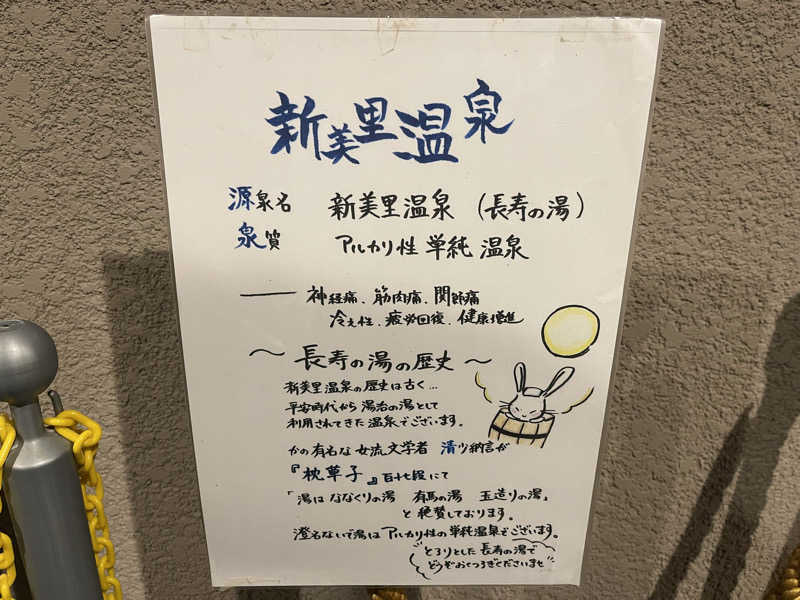 新美里温泉
源泉名 新美里温泉 (長寿の湯)
泉質 アルカリ性単純温泉
神経痛、筋肉痛、関節痛
冷え性、疲労回復、健康増進
～長寿の湯の歴史～
新美里温泉の歴史は古く…
平安時代から湯治の湯として
利用されてきた温泉でございます。
かの有名な女流文学者 清少納言が
『枕草子』百十七段にて
「湯はななくりの湯 有馬の湯 玉造りの湯」
と絶賛しております。
澄名ないで湯はアルカリ性の単純温泉でございます。
"とろりとした長寿の湯で
どうぞおくつろぎくださいませ"